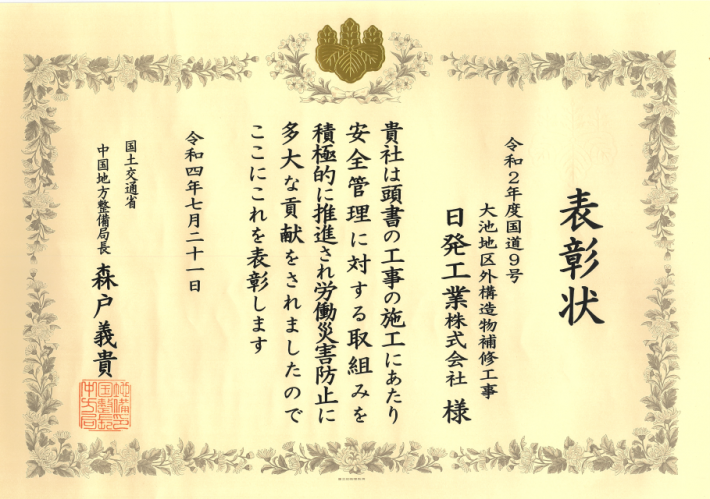 表彰状
令和2年度国道9号
大池地区外構造物補修工事
日発工業株式会社 様
貴社は頭書の工事の施工にあたり
安全管理に対する取組みを
積極的に推進され労働災害防止に
多大な貢献をされましたので
ここにこれを表彰します
令和四年七月二十一日
国土交通省
中国地方整備局長 森戸義貴